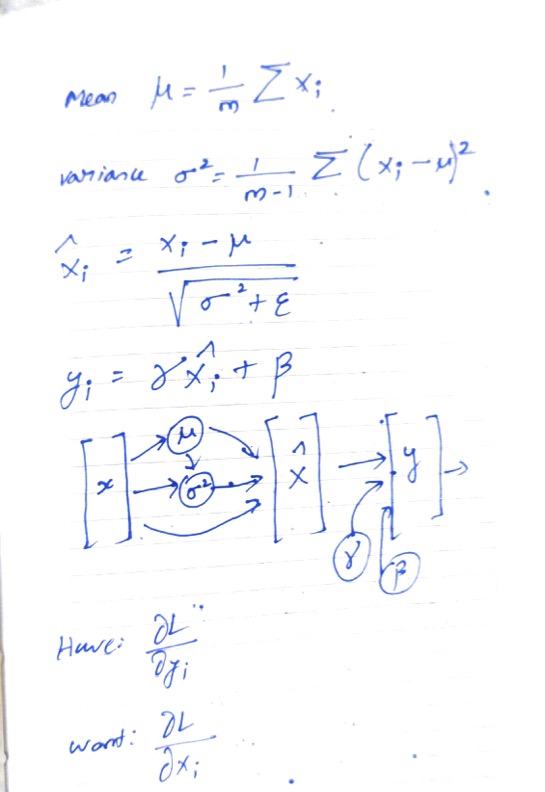 Mean μ = 1/m Σ xi
variance σ² = 1/(m-1) Σ (xi - μ)²
x̂i = (xi - μ)/√(σ² + ε)
yi = γ x̂i + β
[x] μ σ² [x̂] [y]
γ β
Have: ∂L/∂yi
want: ∂L/∂xi